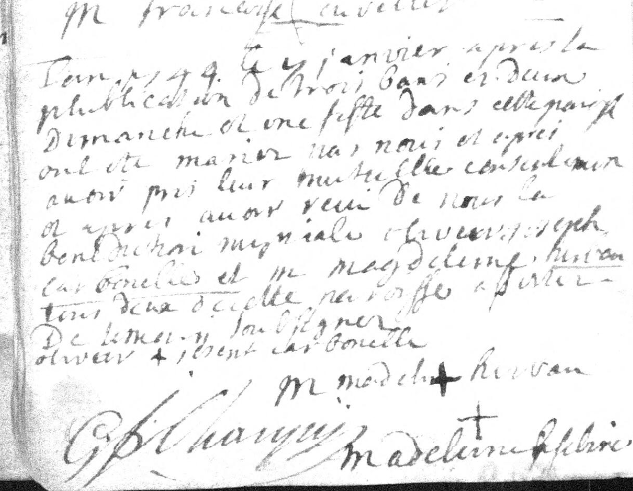 M francoise cuvellier
Lan 1749 le 7 janvier apres la
plublication de trois bans en deux
Dimanche et une feste dans cette paroisse
ont ete marier par nous et apres
avoir pris leur mutuelle consentemen
et apres avoir receu de nous la
benediction nuptiale olivier joseph
carbonelle et m magdeleine hervau
tous deux de cette paroisse
De temoin soubsigner
olivier + carbonelle
M madel + hervau
+
madeleine lefebvre